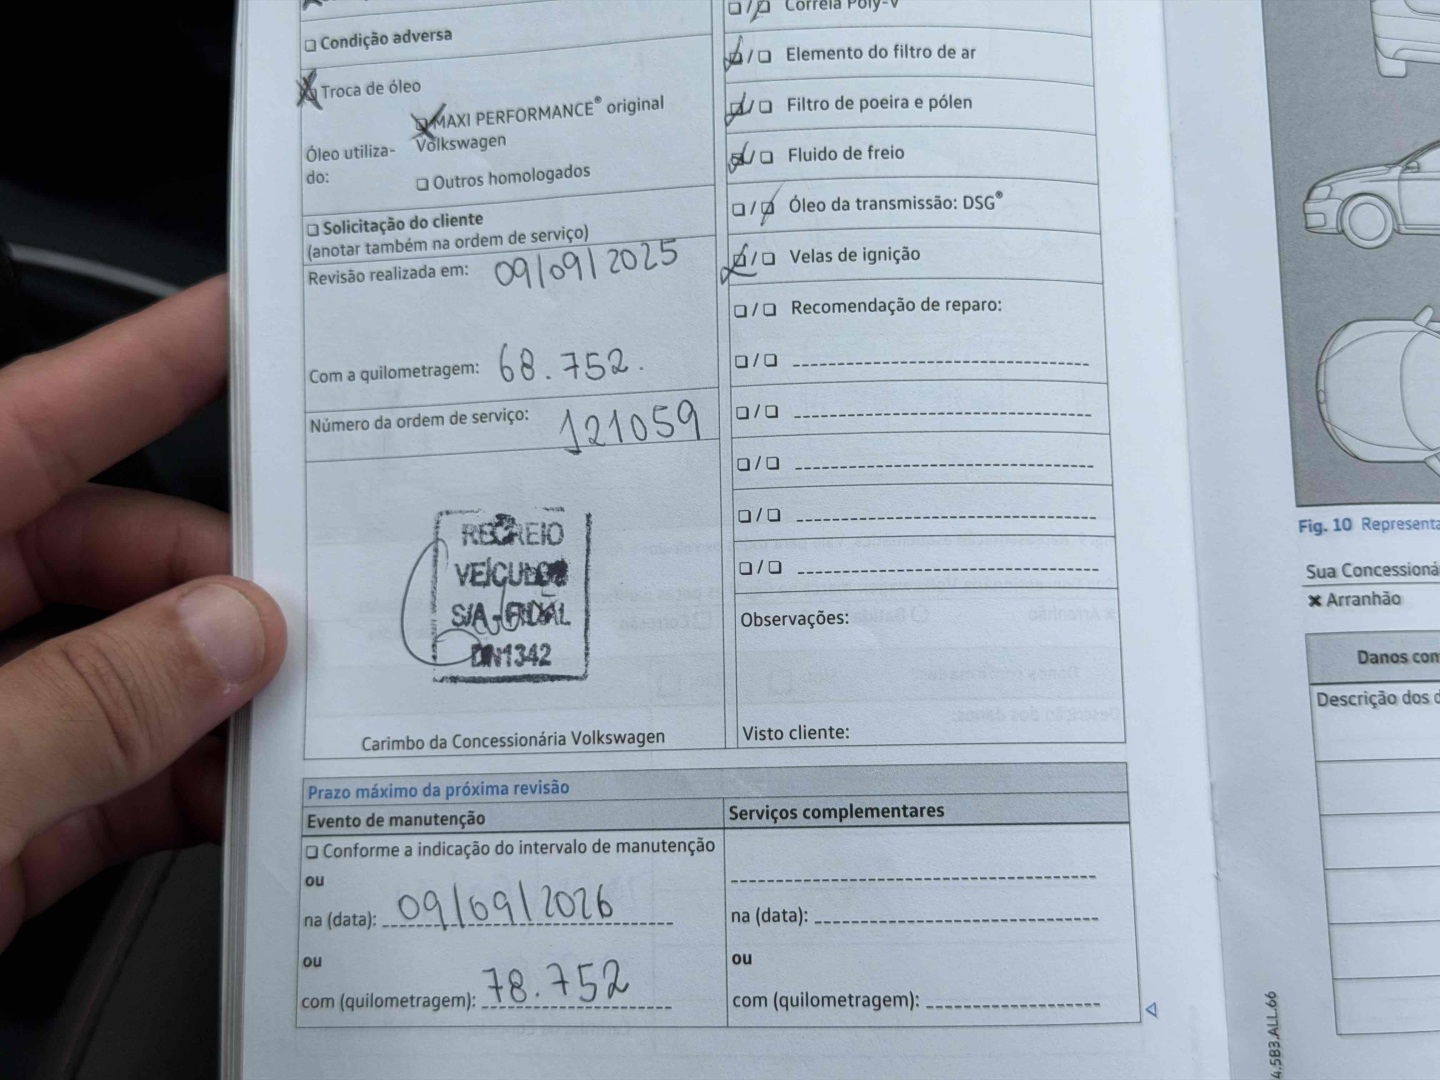 ❏ Condição adversa
Troca de óleo
MAXI PERFORMANCE® original
Volkswagen
Óleo utiliza-
do:
❏ Outros homologados
❏ Solicitação do cliente
(anotar também na ordem de serviço)
Revisão realizada em: 09/09/2025
Com a quilometragem: 68.752.
Número da ordem de serviço: 121059
RECREIO
VEÍCULOS
S/A
DN1342
Carimbo da Concessionária Volkswagen
Correia Poly-V
Elemento do filtro de ar
Filtro de poeira e pólen
Fluido de freio
Óleo da transmissão: DSG®
Velas de ignição
❏ / ❏ Recomendação de reparo:
❏ / ❏
❏ / ❏
❏ / ❏
❏ / ❏
❏ / ❏
Observações:
Visto cliente:
Prazo máximo da próxima revisão
Evento de manutenção
❏ Conforme a indicação do intervalo de manutenção
ou
na (data): 09/09/2026
ou
com (quilometragem): 78.752
Serviços complementares
na (data):
ou
com (quilometragem):
Fig. 10 Representa
Sua Concessioná
✖ Arranhão
Danos con
Descrição dos d
4.5B3.ALL.66